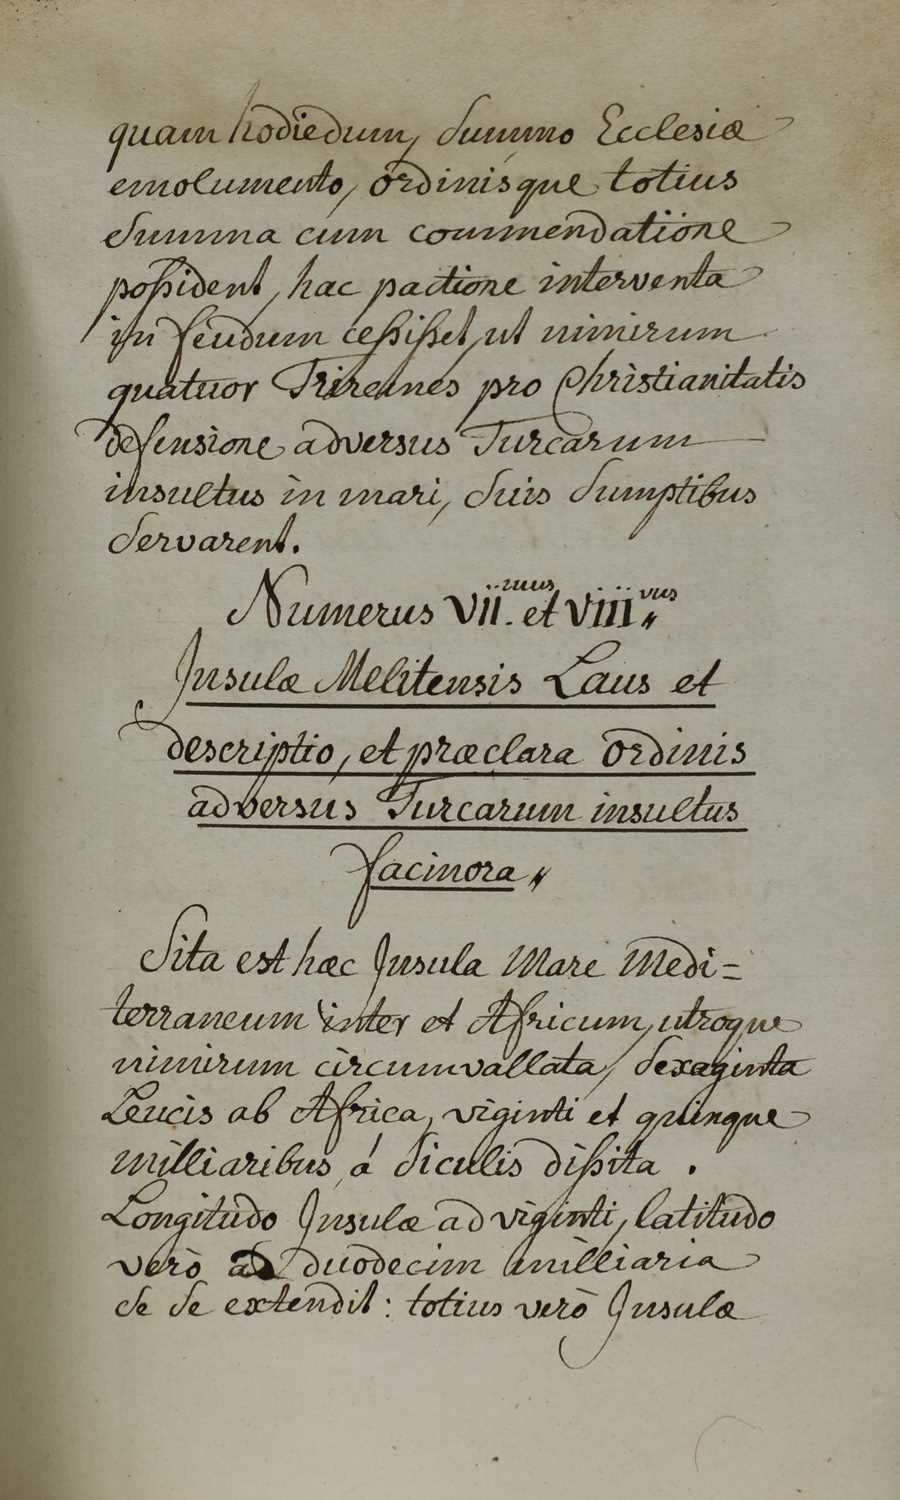 quam hodiedum, summo Ecclesiæ
emolumento, ordinisque totius
summa cum commendatione
possident, hac pactione interventa
in feudum cessisset, ut nimirum
quatuor Triremes pro Christianitatis
defensione adversus Turcarum
insultus in mari, suis sumptibus
servarent.
Numerus VII.mus et VIIIvus
Insulæ Melitensis Laus et
descriptio, et præclara ordinis
adversus Turcarum insultus
facinora„
Sita est hæc Insula Mare Medi=
terraneum inter et Africum, utroque
nimirum circumvallata, sexaginta
Leucis ab Africa, viginti et quinque
milliaribus á Siculis dissita.
Longitudo Insulæ ad viginti, latitudo
verò ad duodecim milliaria
se se extendit: totius verò Insulæ